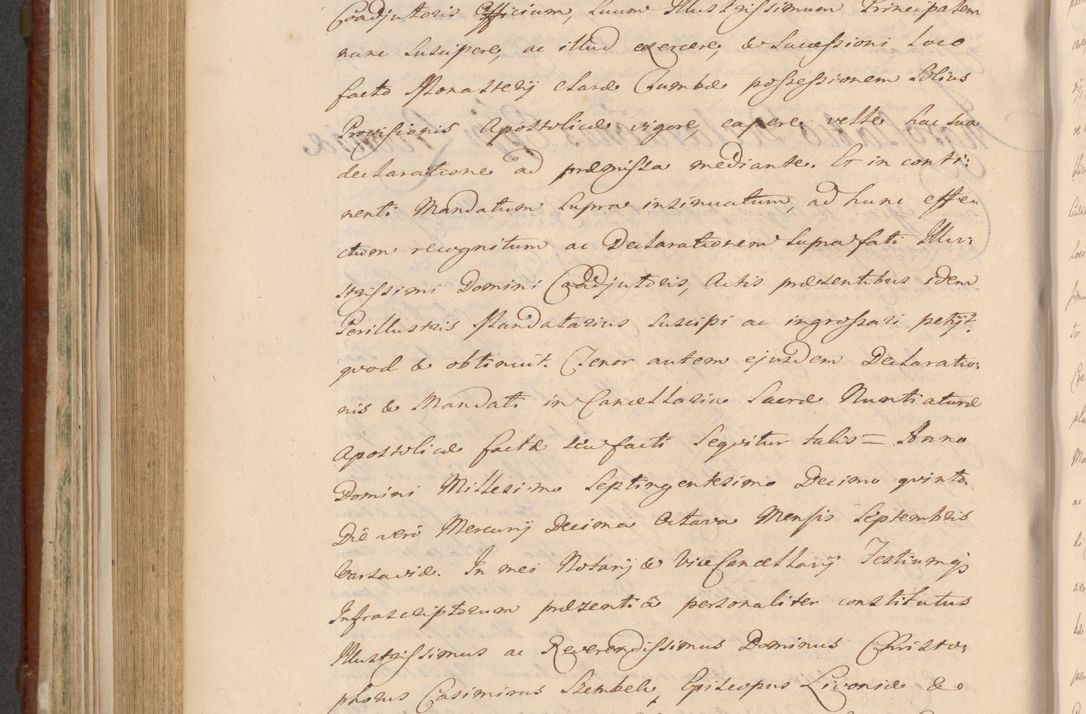 Coadjutoris officium, suum Illustrissimum Principatem
nunc suscipere, ac illud exercere, & successioni loco
facto Monasterij Claræ Tumbæ possessionem illius
Provisionis Apostolicæ vigore capere velle hac sua
declaratione ad præmissa mediante. Et in conti:
nenti Mandatum supra insinuatum, ad hunc effe:
ctum recognitum ac Declarationem suprafati Illu:
strissimi Domini Coadjutoris, Actis præsentibus idem
Perillustris Mandatarius suscipi ac ingrossari petijt.
quod & obtinuit. Tenor autem ejusdem Declaratio:
nis & Mandati in Cancellaria Sacræ Nuntiaturæ
Apostolicæ factæ seu facti sequitur talis = Anno
Domini Millesimo Septingentesimo Decimo quinto
Die vero Mercurij Decima Octava Mensis Septembris
Varsaviæ. In mei Notarij & ViceCancellarij Testiumq3
Infrascriptorum præsentia personaliter constitutus
Illustrissimus ac Reverendissimus Dominus Christo:
phorus Casimirus Szembek, Episcopus Livoniæ &